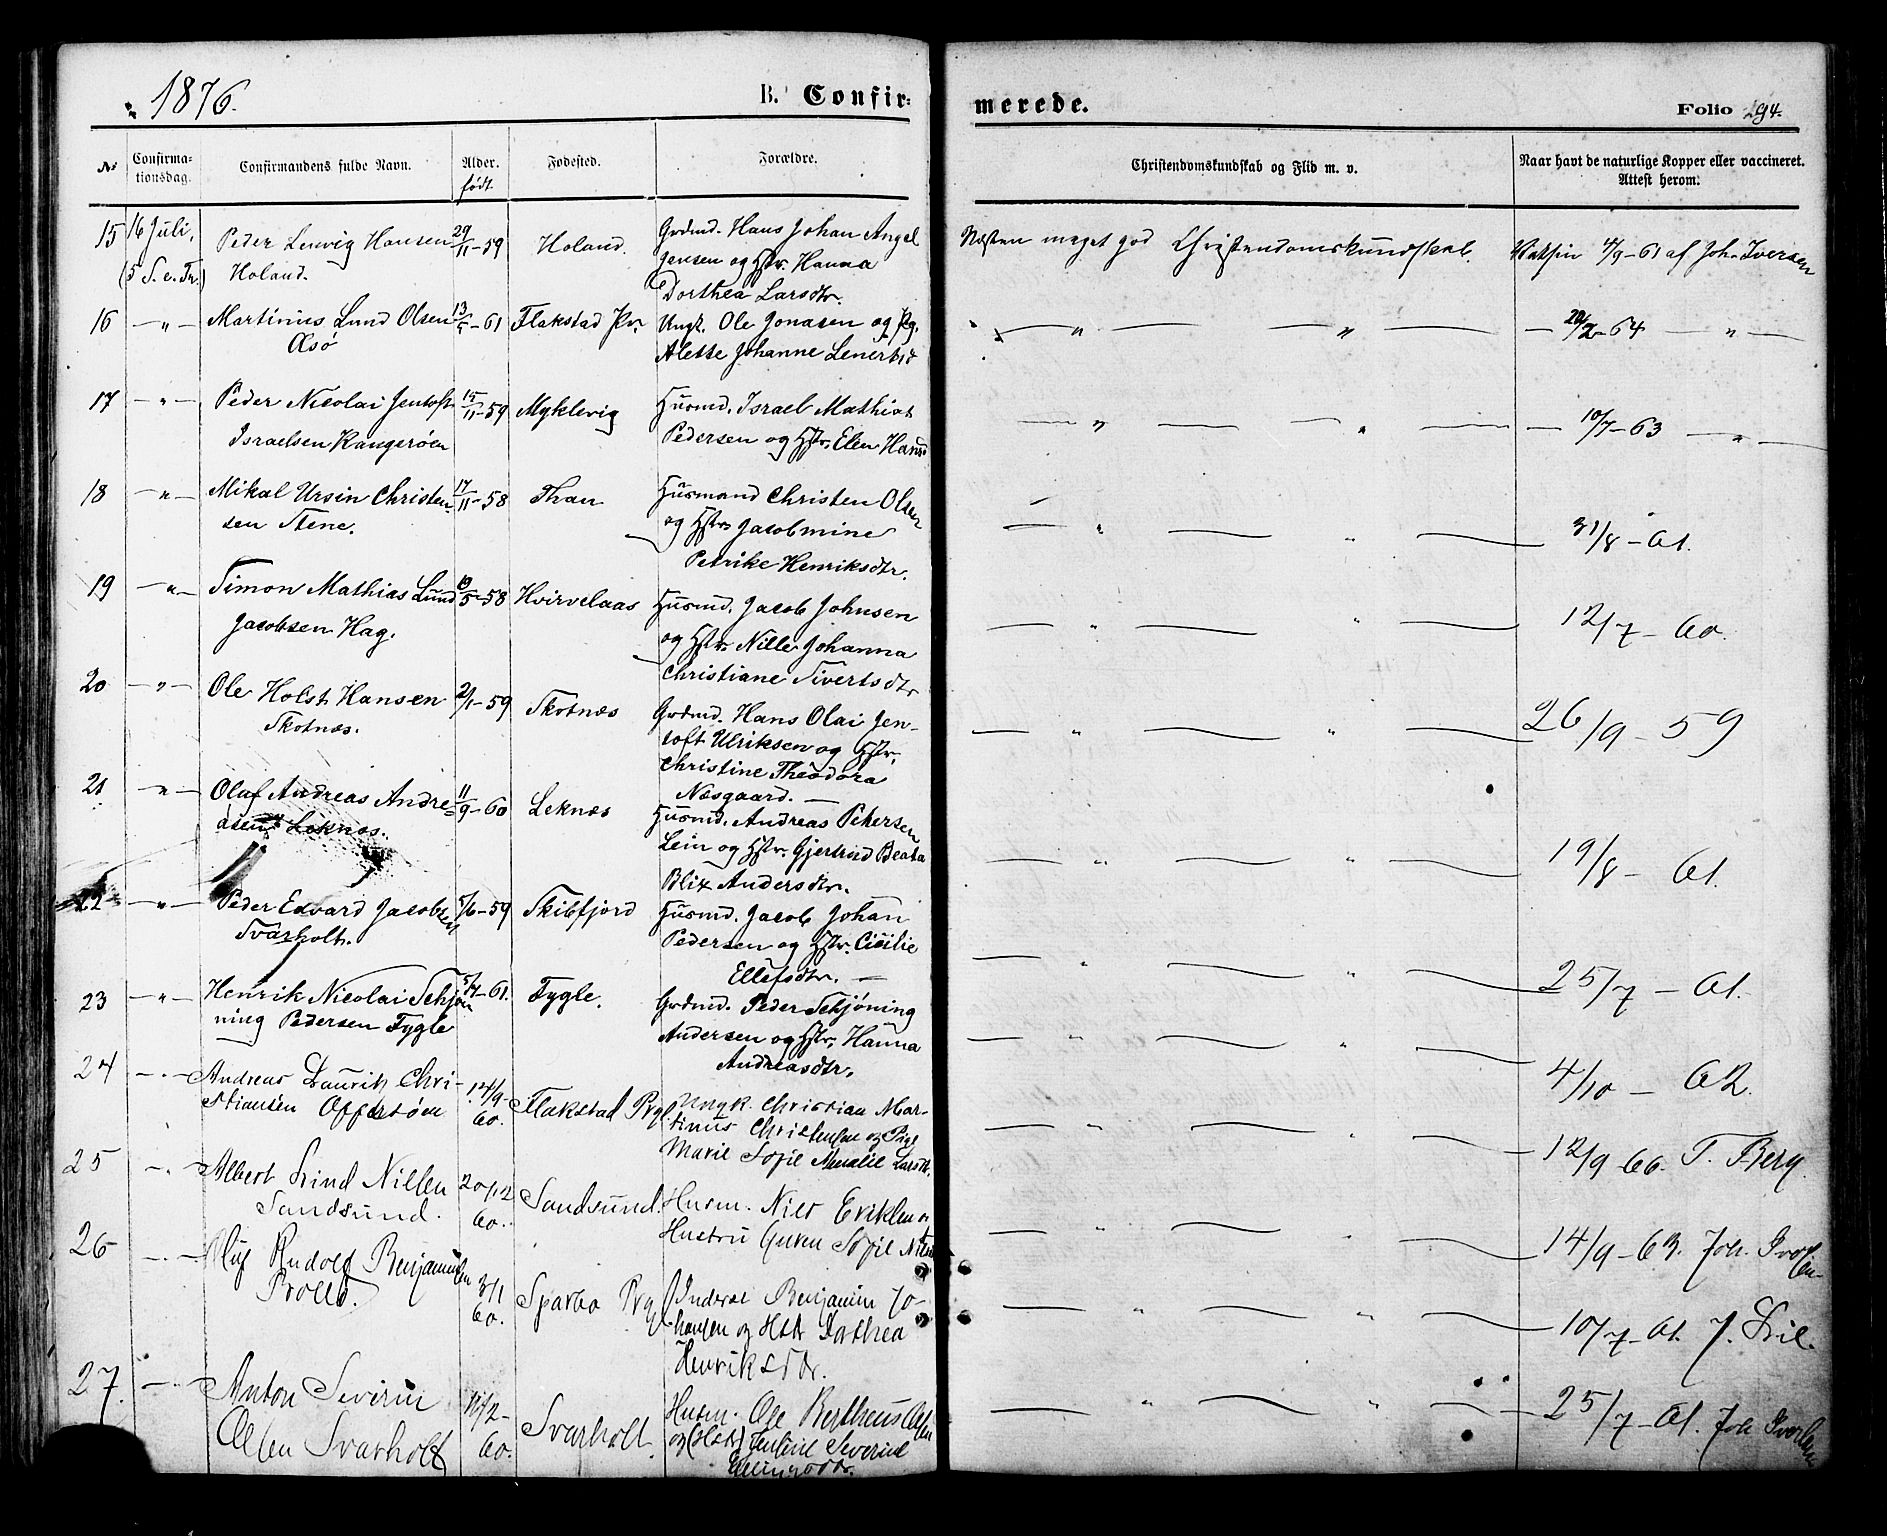 1876.
B. Confirmerede.
Folio 294.
No
Confirmationsdag.
Confirmandens fulde Navn.
Alder. født
Fødested.
Forældre.
Christendomskundskab og Flid m. v.
Naar havt de naturlige Kopper eller vaccineret. Attest herom.
15 16 Juli, Peder Ludvig Hansen 29/11-59 Holand. Grdmd. Hans Johan Angel Næsten meget god Christendomskundskab. 4/9-61 af Joh. Iversen
(5 S. e. Tr.) Holand. Jensen og Hstr. Hanna
Dorthea Larsdtr.
16 —"— Martinus Lund Olsen 13/5-61 Flakstad Ungk. Ole Jonasen og Pg. — " — — " — 64 — " —
Alette Johanne
17 —"— Peder Nicolai Jentoft 15/11-59 Myklevig Husmd. Israel Mathias — " — — " — 10/7-63 — " —
Israelsen Kangerøen Pedersen og Hstr. Elen Hansd
18 —"— Mikal Ursin Christen- 17/11-58 Than Husmand Christen Olsen — " — — " — 31/8-61.
sen Stene. og Hstr. Jacobmine
Petrike Henriksdtr.
19 —"— Simon Mathias Lund 19/5-58 Hvirvelaas Husmd. Jacob Johnsen — " — — " — 12/7-60.
Jacobsen Hag. og Hstr. Nille Johanna
Christiane Sivertsdtr
20 —"— Ole Holst Hansen 2/1-59 Skotnæs Grdmd. Hans Olai Jen- — " — — " — 26/9-59
Skotnæs. toft Ulriksen og Hstr.
Christine Theodora
Næsgaard. —
21 —"— Olaf Andreas Andre- 11/9-60 Leknæs Husmd. Andreas Petersen — " — — " — 19/8-61.
asen Leknæs. Lein og Hstr. Gjertrud Beata
Blix Andersdtr.
22 —"— Peder Edvard Jacobsen 5/6-59 Skibfjord Husmd. Jacob Johan — " — — " — 25/7-61.
Svarholt. Pedersen og Hstr. Cicilie
Ellefsdtr. —
23 —"— Henrik Nicolai Schjøn- 5/4-61. Fygle. Grdmd. Peder Schjøning — " — — " — 4/10-62.
ning Pedersen Fygle Andersen og Hstr. Hanna
Andreasdtr.
24 —"— Andreas Laurits Chri- 14/9- Flakstad Prg. Ungk. Christian Mar- — " — — " — 12/9-66. T. Berg.
stiansen Offersøen 60. tinus Christensen og Pige
Marie Sofie Larsdtr.
25 —"— Albert Lind Nilsen 20/12 Sandsund. Husm. Nils Eriksen og — " — — " — 14/9-63. Joh. Iversen
Sandsund. 60. Hustru Guren Sofie
26 —"— Oluf Rudolf Benjaminsen 3/1 Sparbo Prg. Inderst Benjamin Jo- — " — — " — 10/7-61. J. Lie.
60. hansen og Hstr Dorthea
Henriksdtr.
27. —"— Anton Severin 14/2- Svarholt. Husm. Ole Bertheus Olsen — " — — " — 25/7-61. Joh Iversen
Olsen Svarholt 60. og (Hstr) Severine
Ellingsdtr.